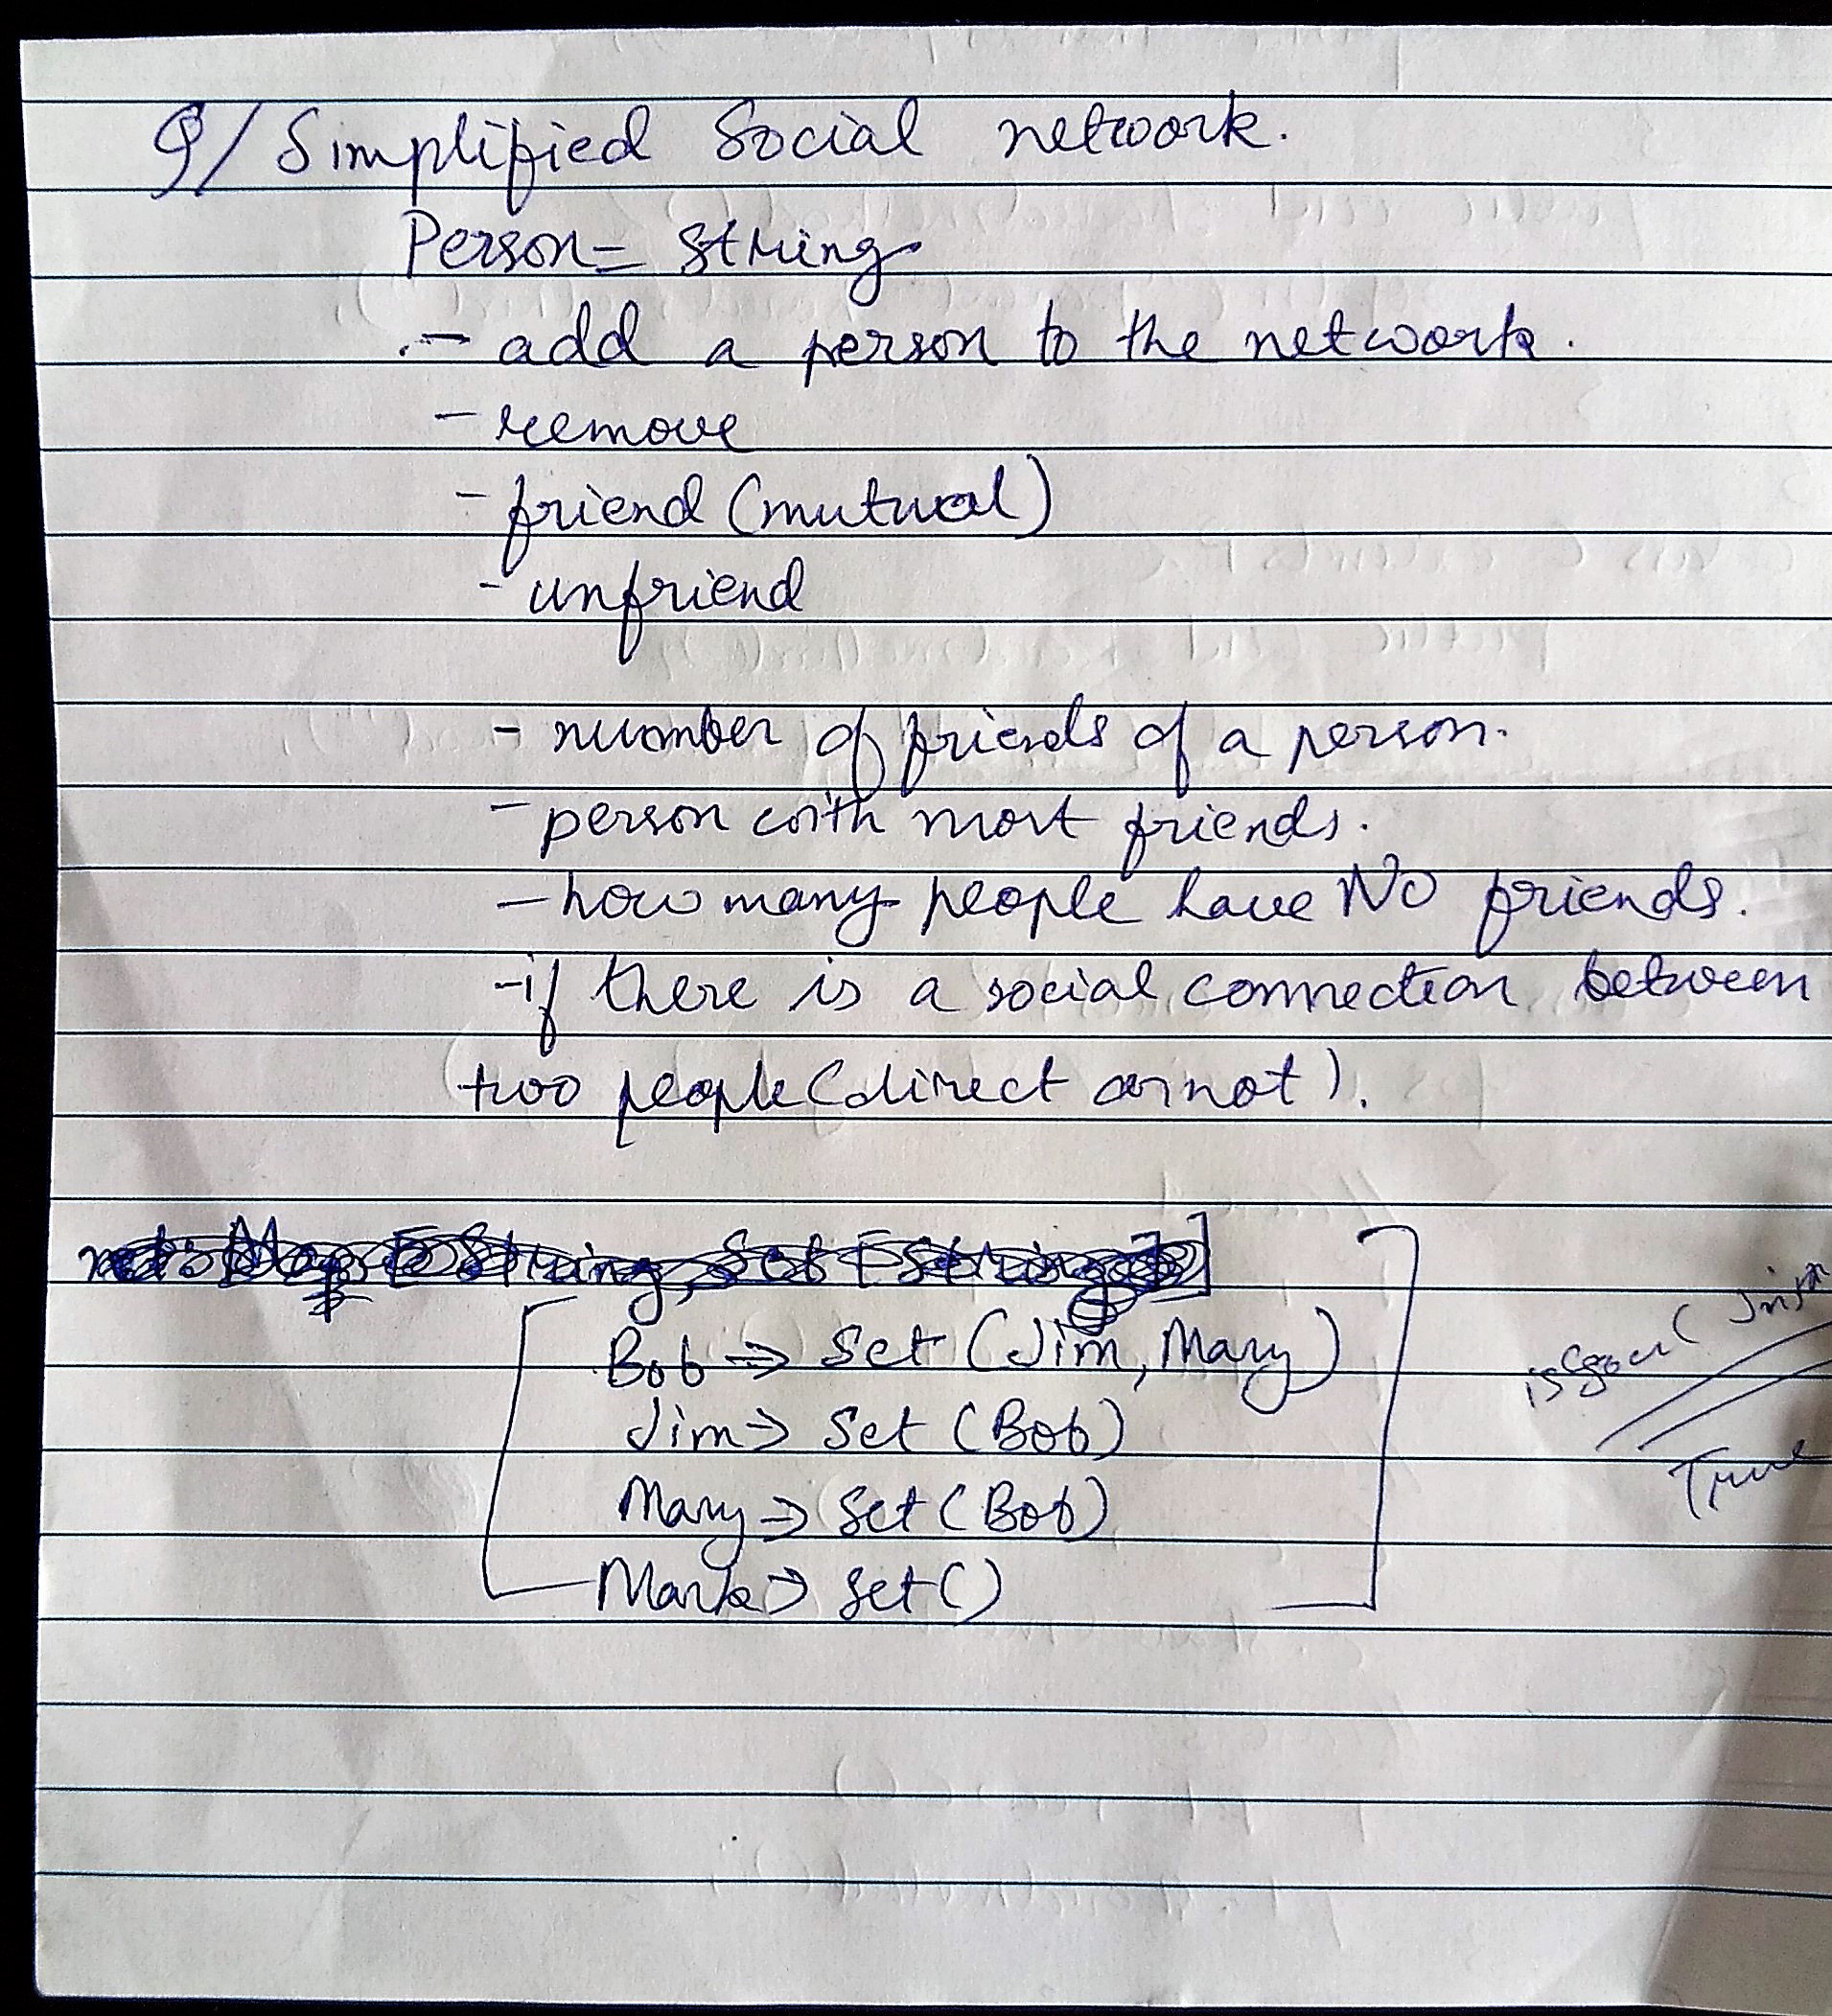 Q/ Simplified Social network.
Person = String
- add a person to the network.
- remove
- friend (mutual)
- unfriend
- number of friends of a person.
- person with most friends.
- how many people have NO friends.
- if there is a social connection between
two people (direct or not).
net: Map [String, Set [String]]
Bob => Set (Jim, Mary)
Jim => Set (Bob)
Mary => Set (Bob)
Mark => Set ()
True